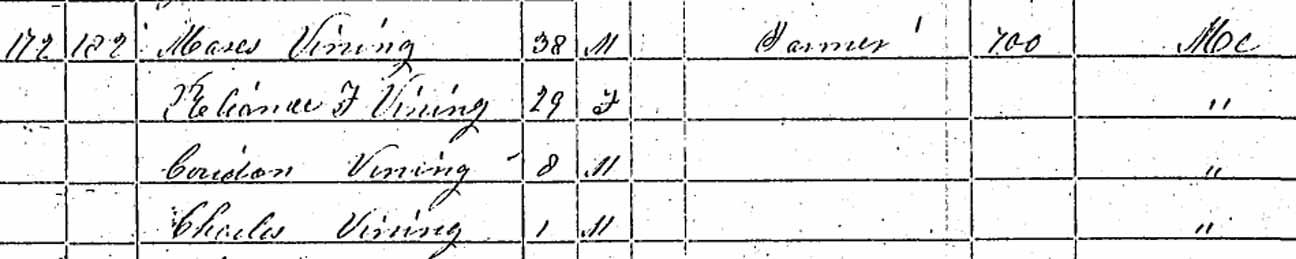 172 182 Moses Vining 38 M Farmer 700 Me
Reliance F Vining 29 F "
Coridon Vining 8 M "
Charles Vining 1 M "